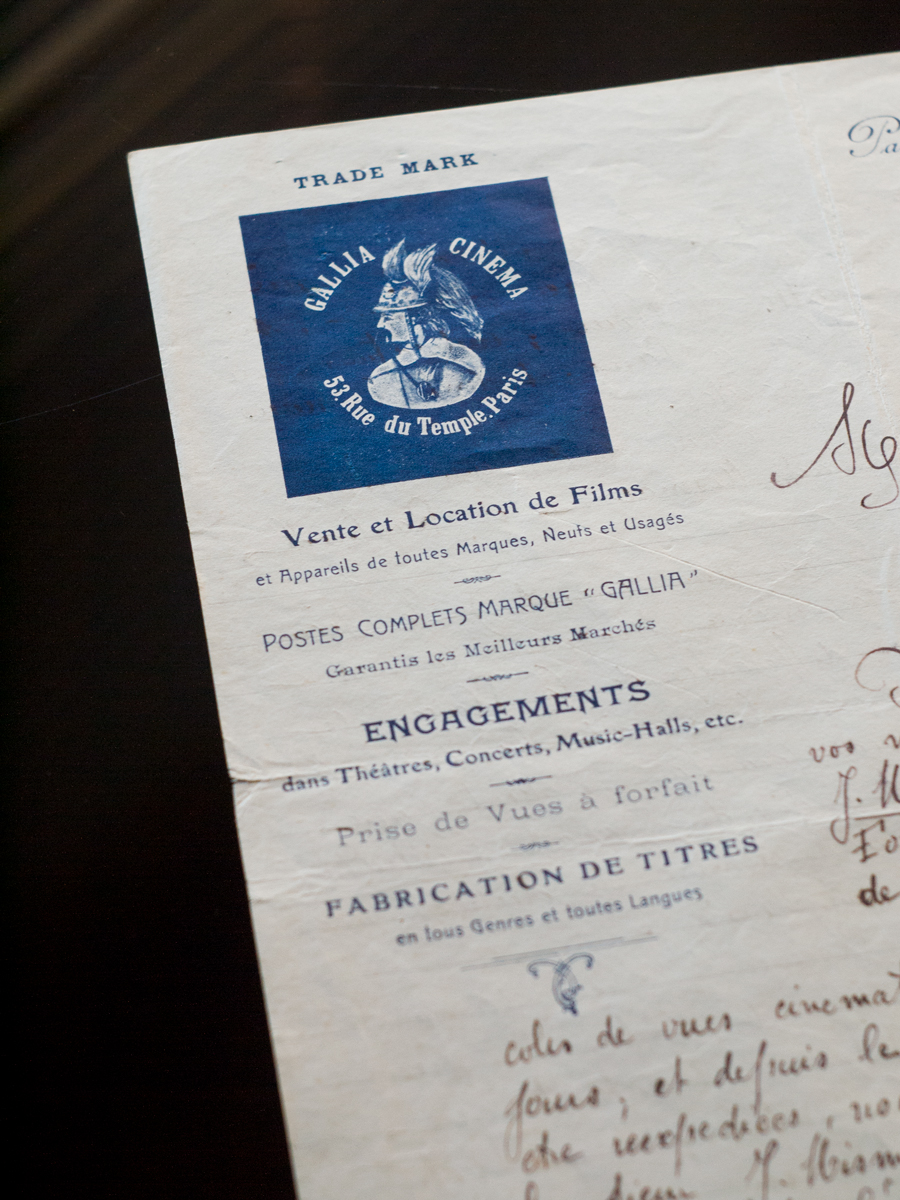 TRADE MARK
GALLIA CINEMA
53, Rue du Temple. Paris
Vente et Location de Films
et Appareils de toutes Marques, Neufs et Usagés
POSTES COMPLETS MARQUE "GALLIA"
Garantis les Meilleurs Marchés
ENGAGEMENTS
dans Théâtres, Concerts, Music-Halls, etc.
Prise de Vues à forfait
FABRICATION DE TITRES
en tous Genres et toutes Langues
Pa
vos
J. M
Fo
de
colis de vues cinema
jours, et depuis le
être reexpediées, no
J. Mism